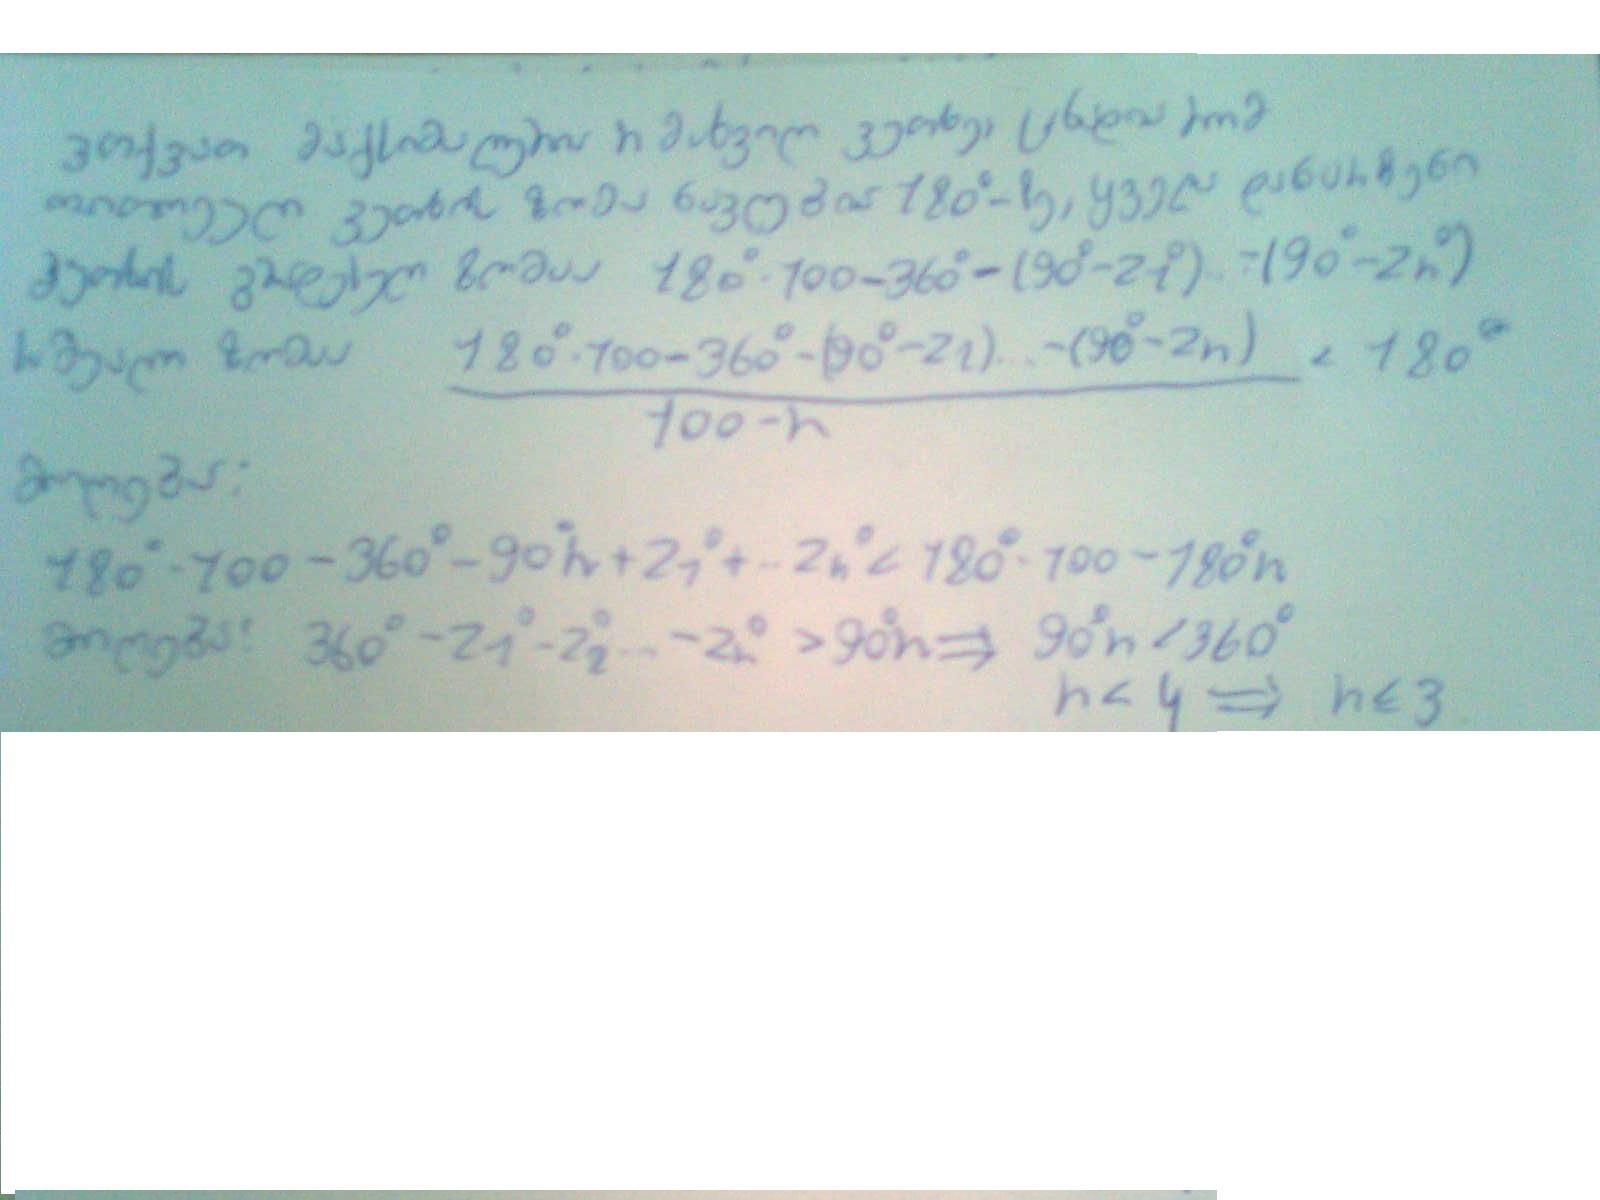 ვთქვათ მაქსიმალურია n მახვილ კუთხე, ცხადია რომ
თითოეულ კუთხის ზომა ნაკლებია 180°-ზე, ყველა დანარჩენი
კუთხის გრადუსულ ზომაა 180°·100-360°-(90°-Z1°)..-(90°-Zn°)
ზომაა 180°·100-360°-(90°-Z1)...-(90°-Zn) < 180°
100-n
მიღება:
180°·100-360°-90°n+Z1°+..Zn°< 180°·100-180°n
მიღება: 360°-Z1°-Z2°...-Zn° >90°n⇒ 90°n<360°
n<4 ⇒ n≤3